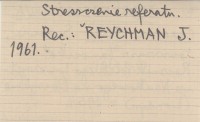 Streszczenie referatu.
Rec.: REYCHMAN J.
1961.